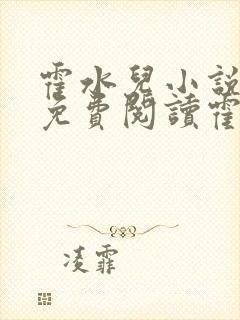 霍水兒小說
免費閱讀霍
凌霏